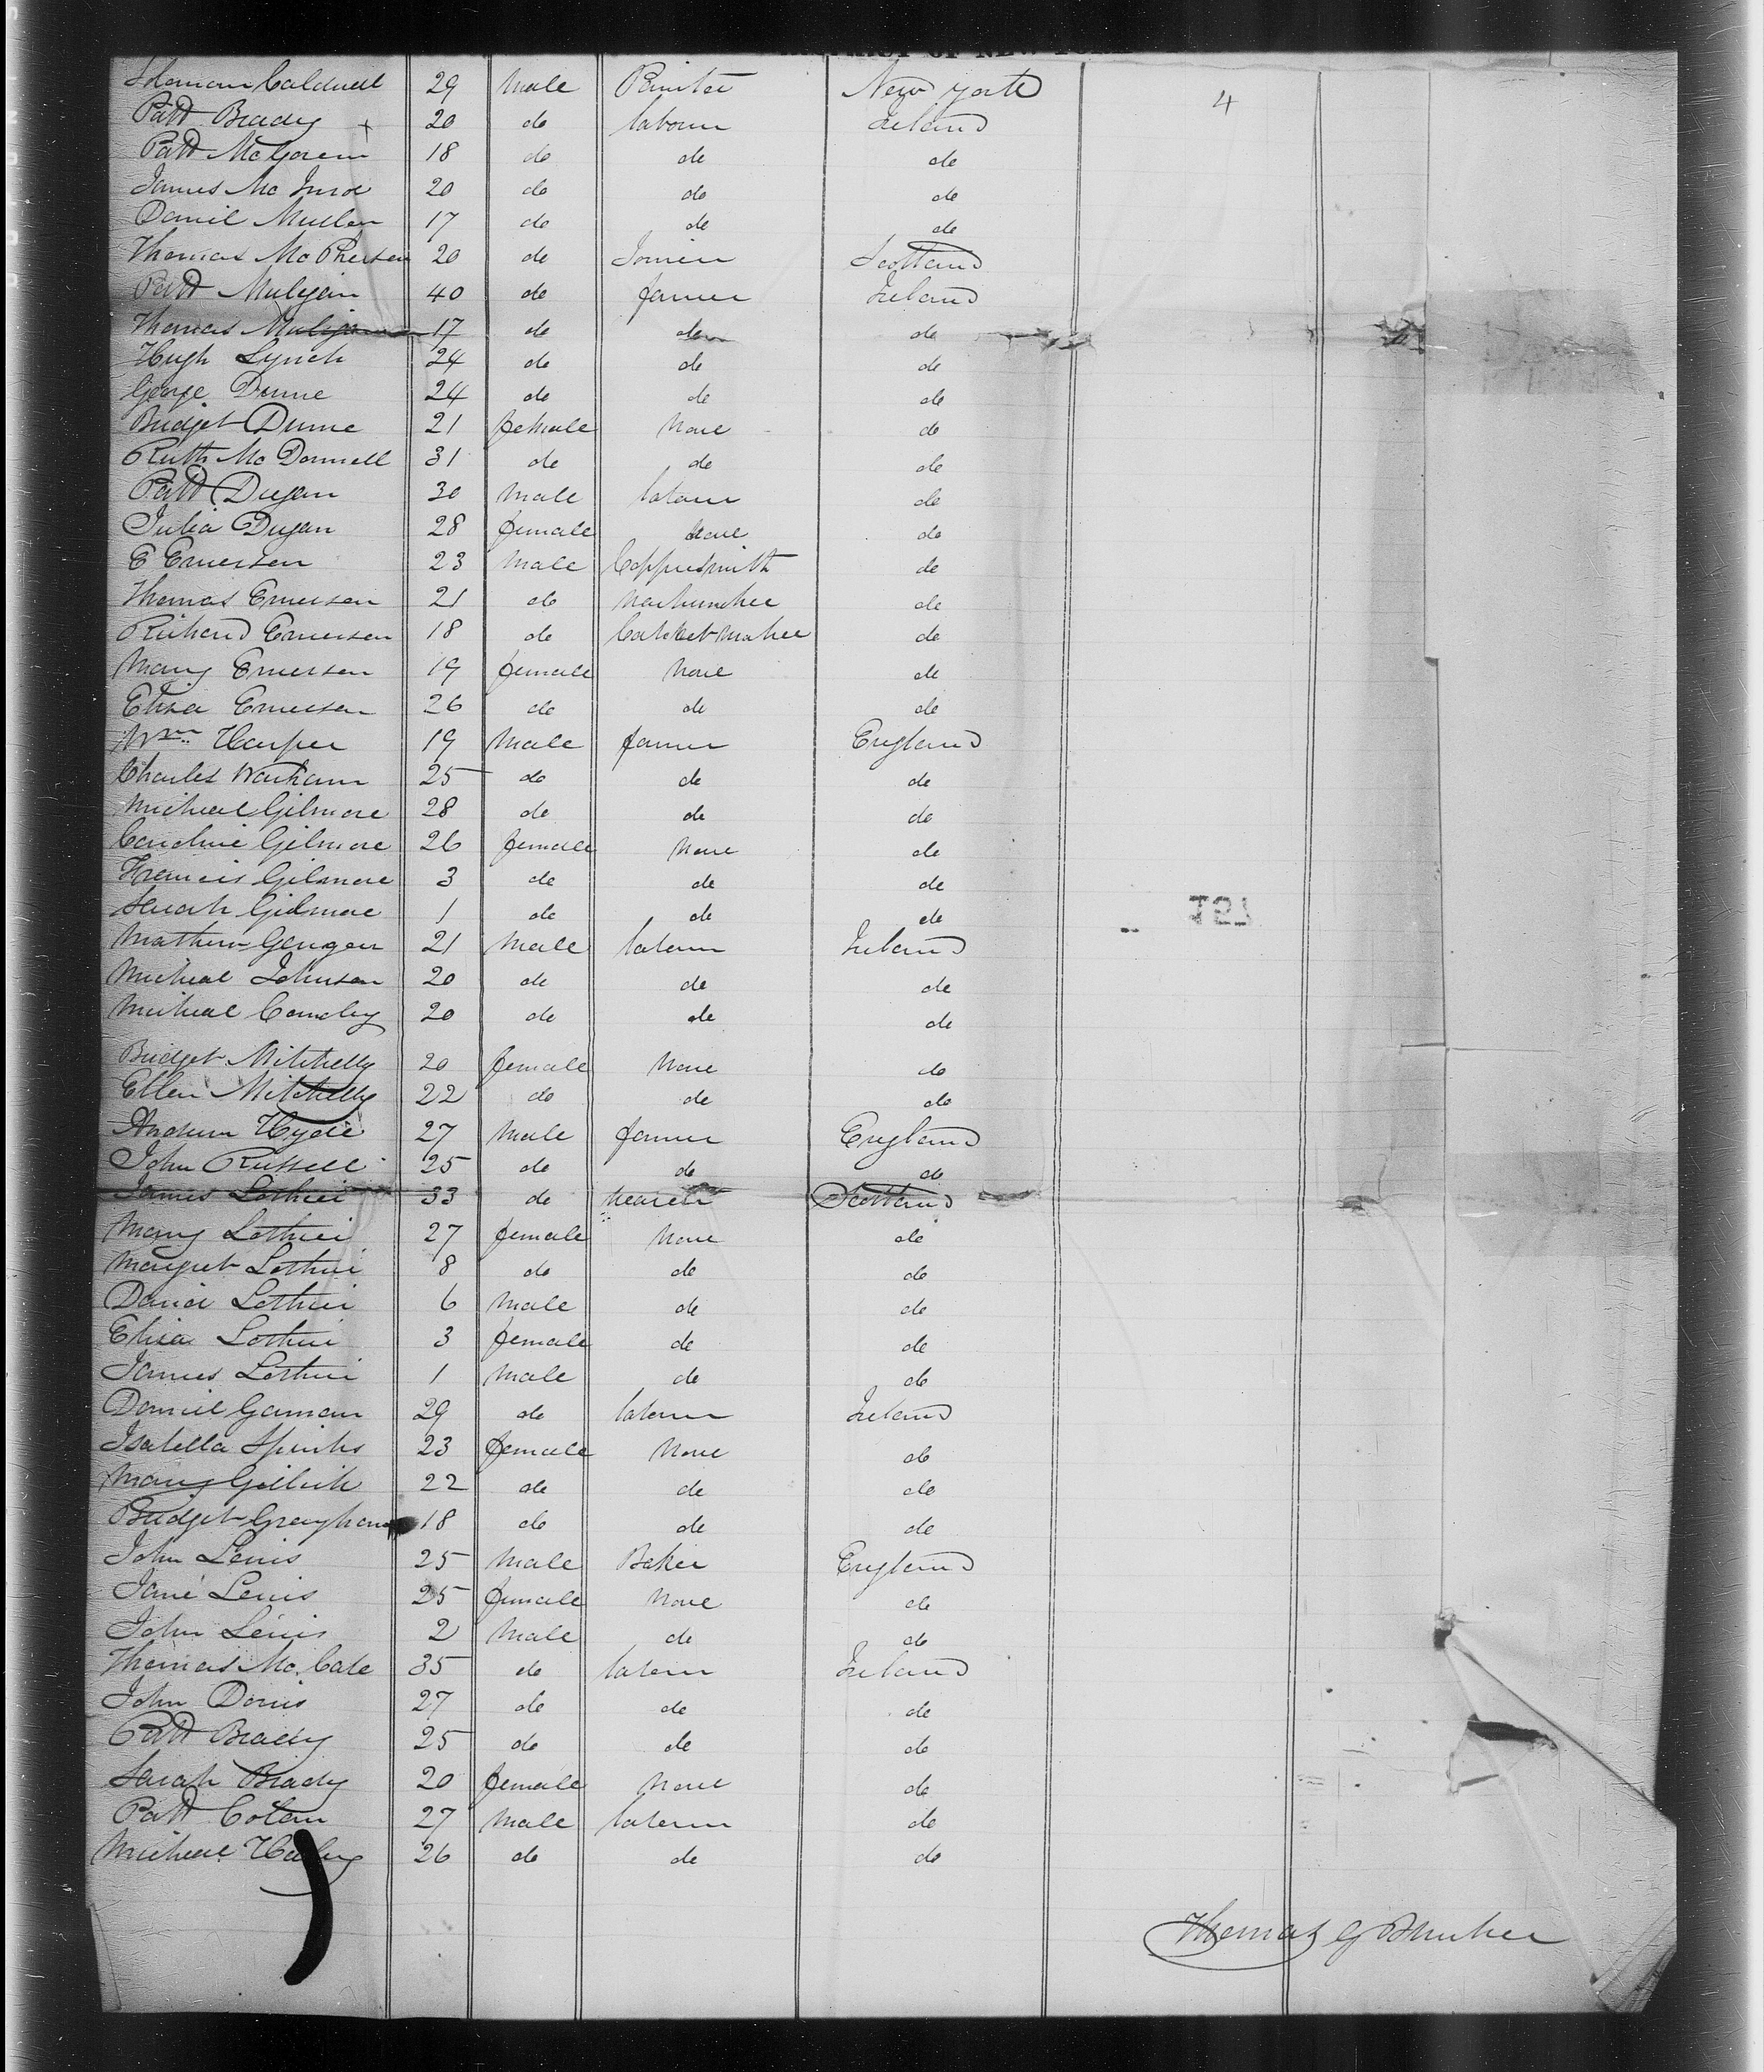 DISTRICT OF NEW YORK
Soloman Caldwell 29 male Painter New York 4
Patt Brady + 20 do labourer Ireland
Patt McGovern 18 do do do
James Mc 20 do do do
Daniel Mullen 17 do do do
Thomas McPherson 20 do Joiner Scotland
Patt Muligan 40 do farmer Ireland
Thomas Muligan 17 do do do
Hugh Lynch 24 do do do
George Dunne 24 do do do
Bridget Dunne 21 female None do
Ruth McDonnell 31 do do do
Patt Dugan 30 male labourer do
Julia Dugan 28 female None do
E Emerson 23 male Coppersmith do
Thomas Emerson 21 do do
Richard Emerson 18 do Cabinet maker do
Mary Emerson 19 female None do
Eliza Emerson 26 do do do
Wm Harper 19 male farmer England
Charles Warham 25 do do do
Micheal Gilmore 28 do do do
Caroline Gilmore 26 female None do
Francis Gilmore 3 do do do
Sarah Gilmore 1 do do do
Mathew 21 male labourer Ireland
Micheal Johnson 20 do do do
Micheal 20 do do do
Bridget Mitchelly 20 female None do
Ellen Mitchelly 22 do do do
Andrew Hyde 27 male farmer England
John Russell 25 do do do
James Lothier 33 do weaver Scotland
Mary Lothier 27 female None do
Margret Lothier 8 do do do
David Lothier 6 male do do
Eliza Lothier 3 female do do
James Lothier 1 male do do
Daniel Gaman 29 do labourer Ireland
Isabella Spinks 23 female None do
Mary 22 do do do
Bridget Grayham 18 do do do
John Lewis 25 male Baker England
Jane Lewis 25 female None do
John Lewis 2 male do do
Thomas McCabe 35 do labourer Ireland
John Davis 27 do do do
Patt Brady 25 do do do
Sarah Brady 20 female None do
Patt Colan 27 male labourer do
Micheal 26 do do do
Thomas G